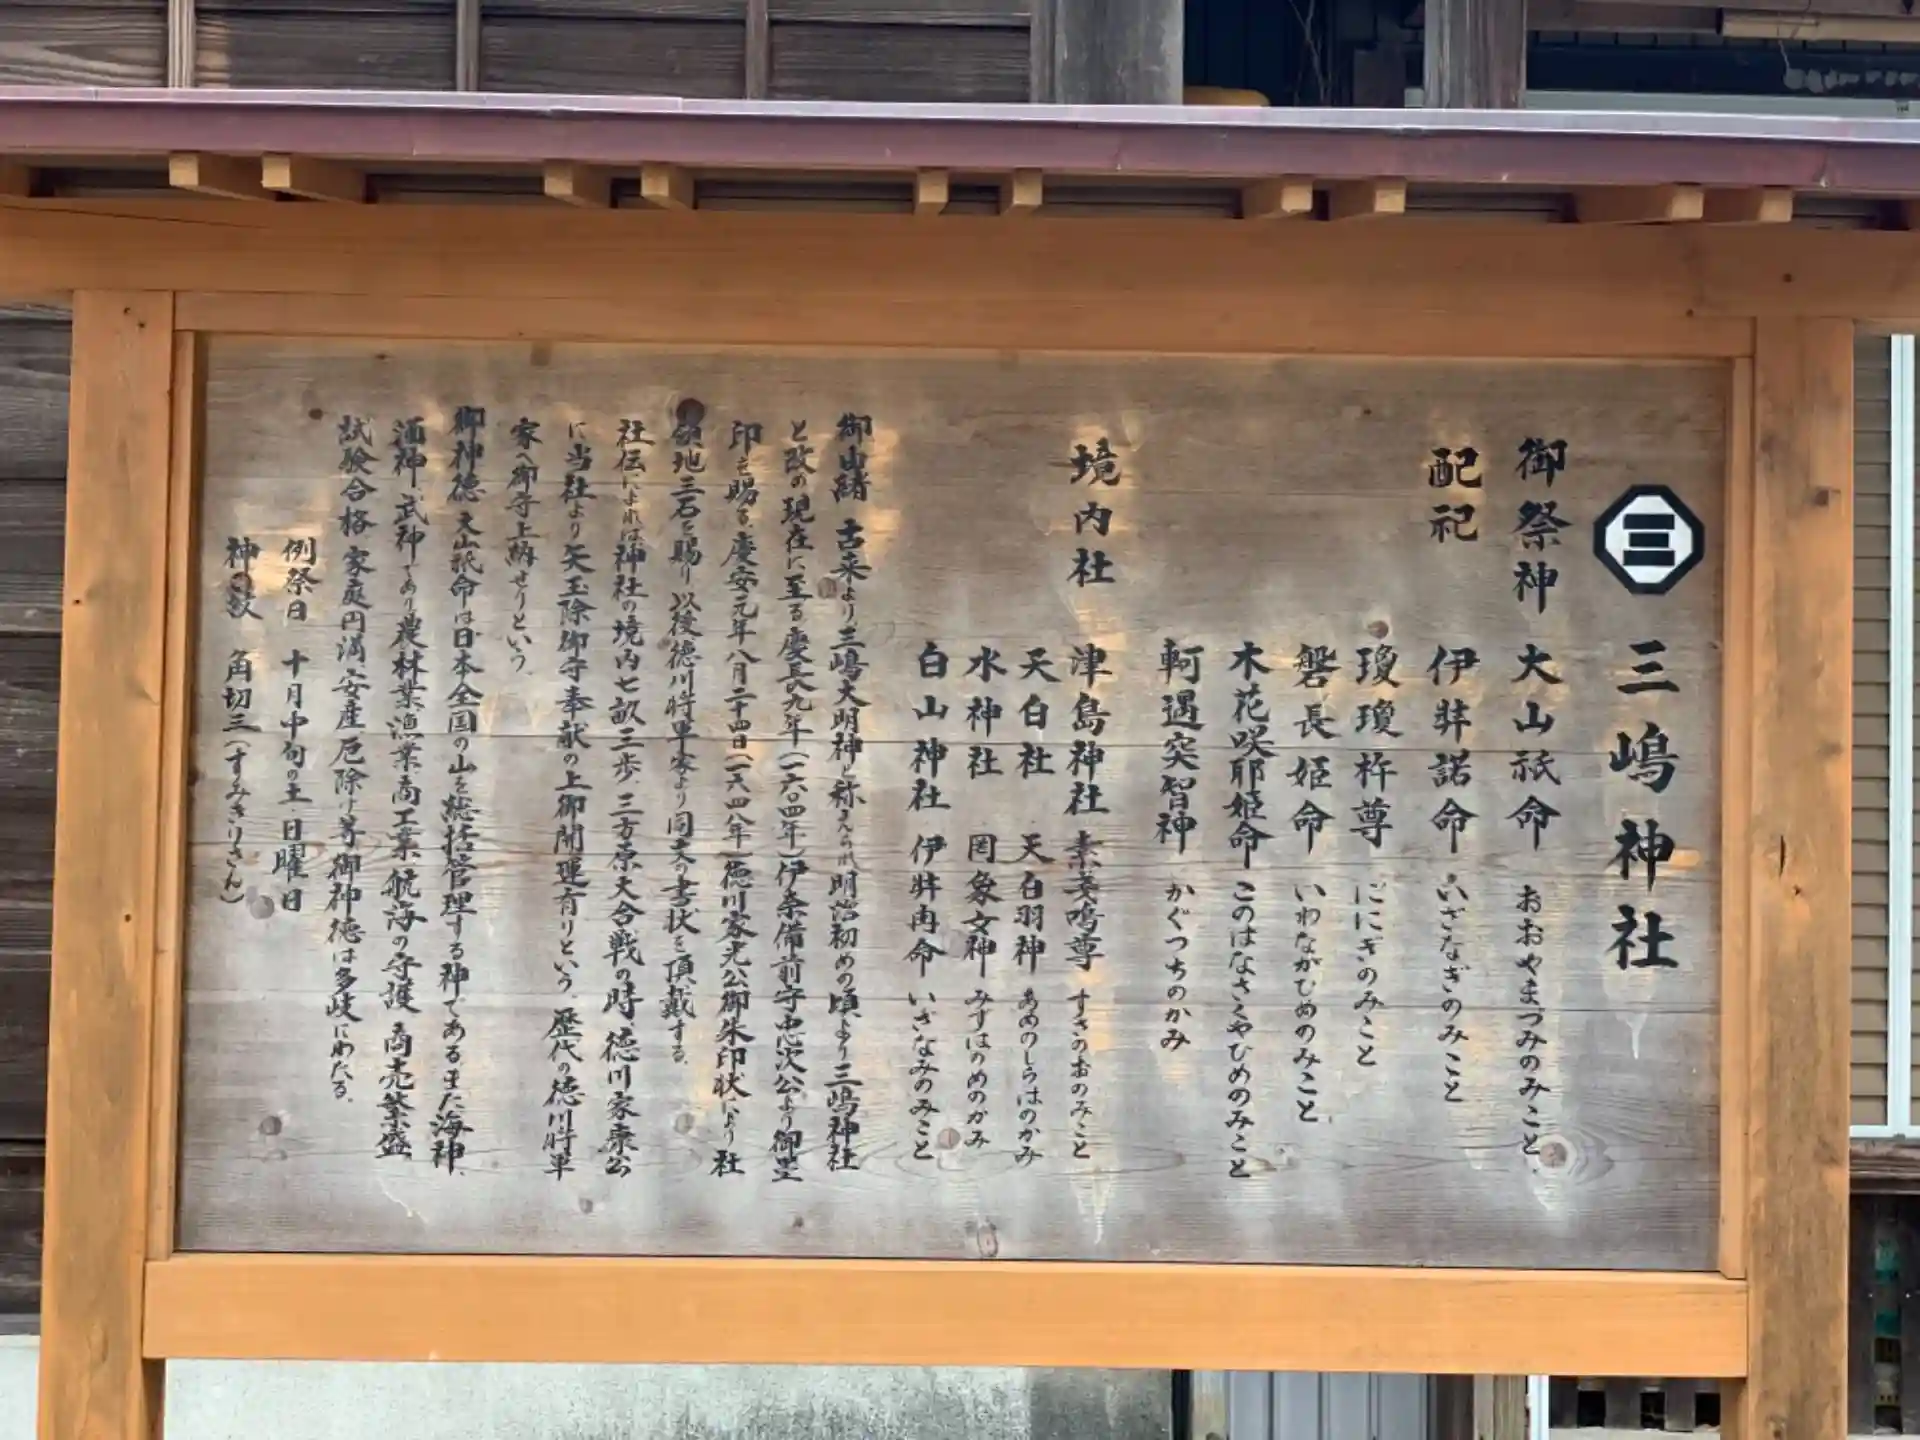 三
三嶋神社
御祭神 大山祇命 おおやまづみのみこと
配祀 伊弉諾命 いざなぎのみこと
瓊瓊杵尊 ににぎのみこと
磐長姫命 いわながひめのみこと
木花咲耶姫命 このはなさくやひめのみこと
軻遇突智神 かぐつちのかみ
境内社 津島神社 素戔嗚尊 すさのおのみこと
天白社 天白羽神 あめのしらはのかみ
水神社 罔象女神 みずはのめのかみ
白山神社 伊弉冉命 いざなみのみこと
御由緒 古来より三嶋大明神と称えられ明治初めの頃より三嶋神社
と改め現在に至る慶長九年(一六〇四年)伊奈備前守忠次公より御黒
印を賜る、慶安元年八月二十四日(一六四八年)徳川家光公御朱印状により社
領地三石を賜り以後徳川将軍家より同文の書状を頂戴する。
社伝によれば神社の境内七畝三歩、三方原大合戦の時、徳川家康公
に当社より矢玉除御守奉献の上御開運有りという。歴代の徳川将軍
家へ御守上納せりという。
御神徳 大山祇命は日本全国の山を総括管理する神である。また海神、
酒神、武神であり農林業漁業商工業航海の守護 商売繁盛
試験合格 家庭円満 安産 厄除け等御神徳は多岐にわたる。
例祭日 十月中旬の土日曜日
神紋 角切三(すみきりさん)